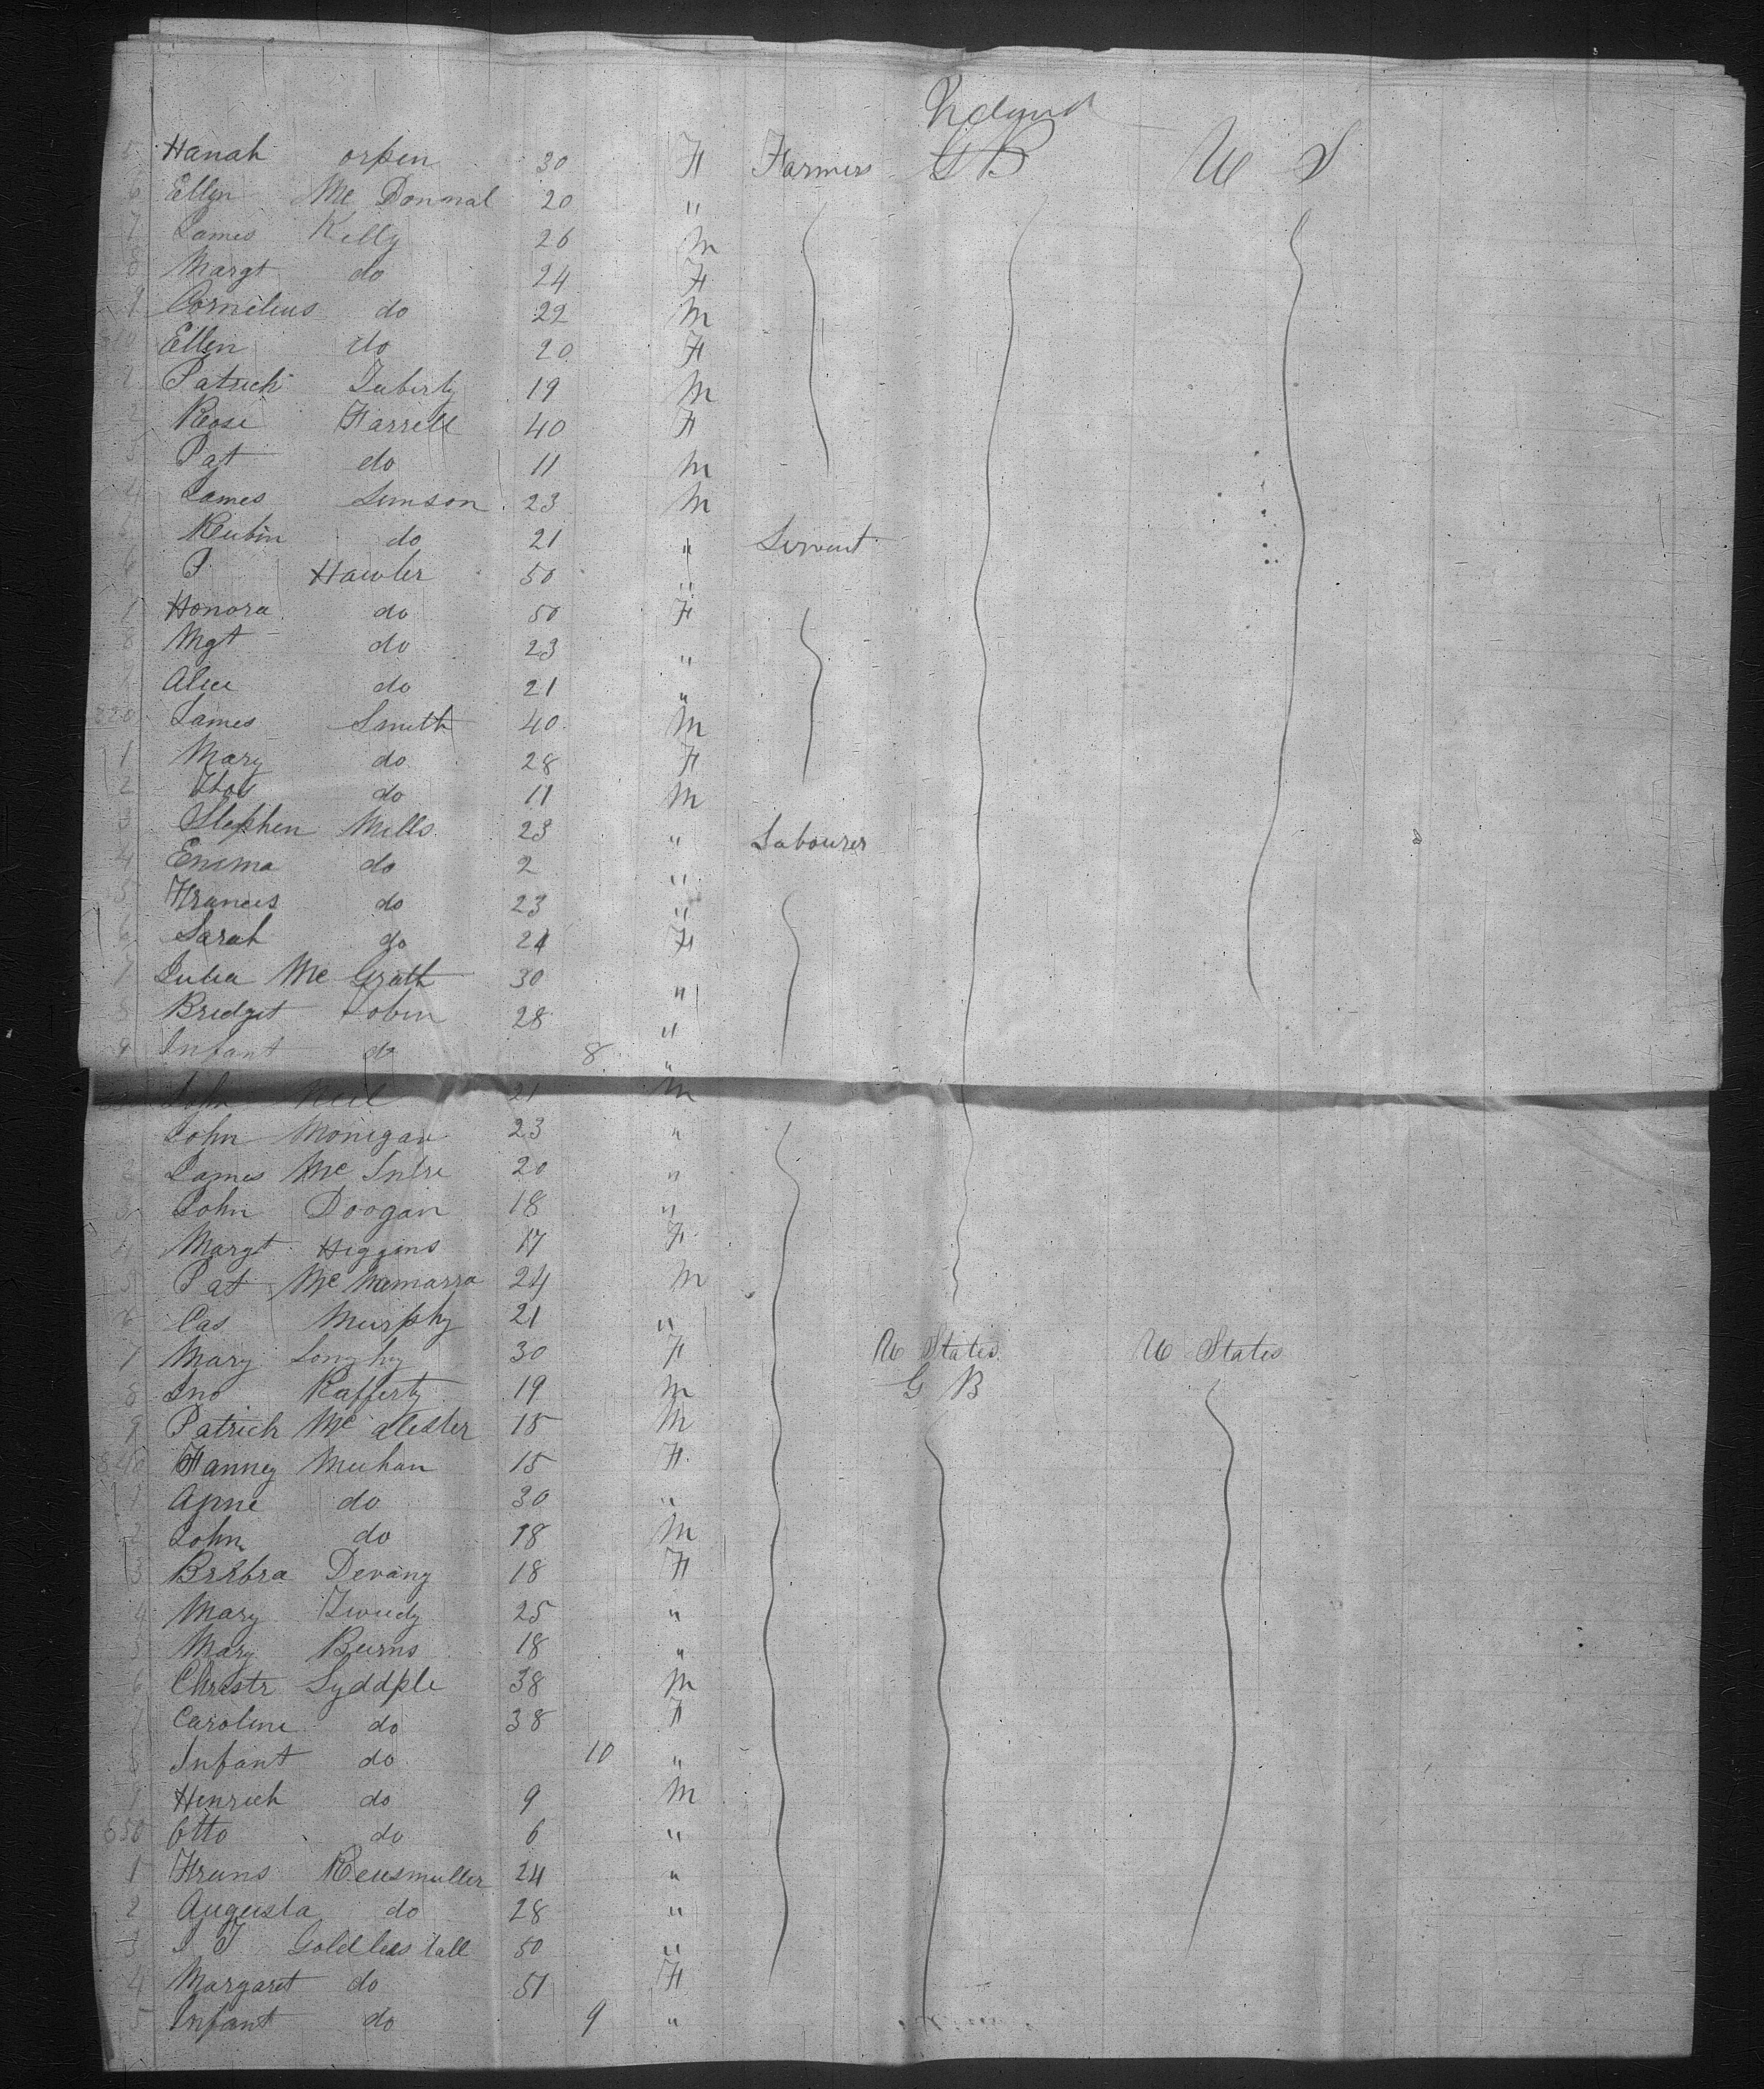 Ireland
5 Hanah orpen 30 F Farmers G B U S
6 Ellen Mc Donnal 20 "
7 James Kelly 26 M
8 Margt do 24 F
9 Cornelius do 22 M
10 Ellen do 20 F
Patrick Tuberty 19 M
2 Rose Farrell 40 F
3 Pat do 11 M
4 James Simson 23 M
Reubin do 21 " Servant
6 P Hawler 50 "
Honora do 50 F
8 Mgt do 23 "
Alice do 21 "
320 James Smith 40 M
1 Mary do 28 F
2 Thos do 11 M
3 Stephen Mills 23 " Labourer
4 Emma do 2 "
5 Frances do 23 "
6 Sarah do 21 F
7 Julia Mc Grath 30 "
8 Bridget Tobin 28 "
9 Infant do 8 "
John Neil 21 M
John Monigan 23 "
2 James Mc Intre 20 "
3 John Doogan 18 "
4 Margt Higgins 17 F
5 Pat Mc Namarra 24 M
6 Cas Murphy 21 "
7 Mary 30 F U States U States
8 Jno Rafferty 19 M G B
9 Patrick Mc alester 15 M
Fanney Meehan 15 F
1 Anne do 30 "
2 John do 18 M
3 Brrbra Devany 18 F
4 Mary 25 "
5 Mary Burns 18 "
6 Christr Lyddple 38 M
7 Caroline do 38 F
8 Infant do 10 "
9 Henrich do 9 M
Otto do 6 "
1 Frans Reusmuller 24 "
2 Augusta do 28 "
3 50 "
4 Margaret do 51 F
5 Infant do 9 "